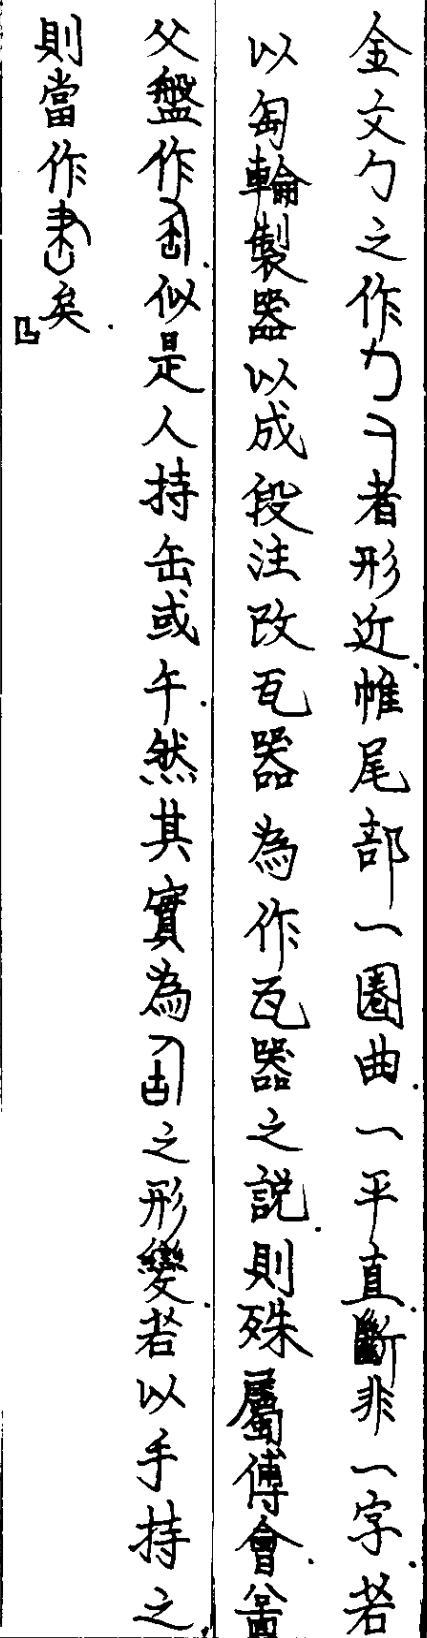 金文勹之作者形近惟尾部一圈曲一平直斷非一字若
以匋輪製器以成段注改瓦器為作瓦器之説則殊屬傅會
父盤作似是人持缶或午然其實為之形變若以手持之
則當作矣